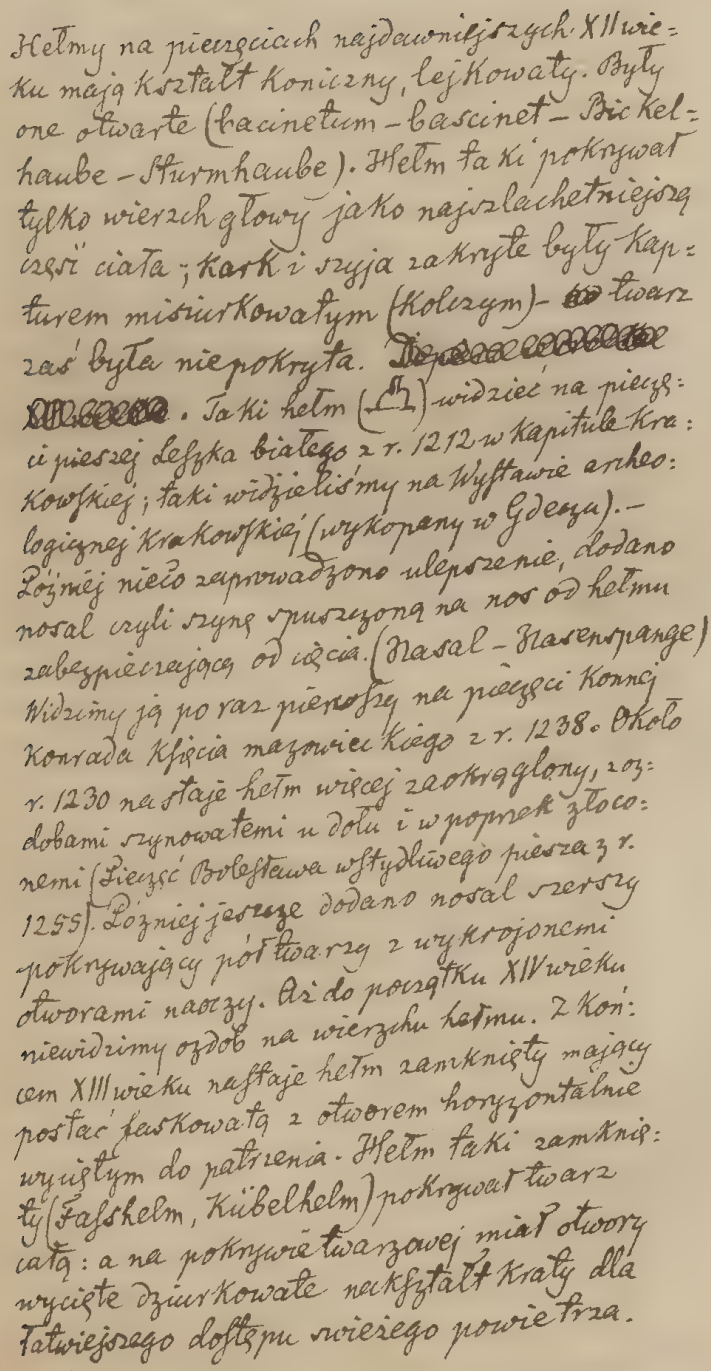 Hełmy na pieczęciach najdawniejszych XII wie=
ku mają kształt koniczny, lejkowaty. Były
one otwarte (bacinetum – bascinet – Bickel=
haube – Sturmhaube). Hełm taki pokrywał
tylko wierzch głowy jako najszlachetniejszą
część ciała; kark i szyja zakryte były kap=
turem misiurkowatym (Kolczym) – twarz
zaś była niepokryta.
. Taki hełm ( ) widzieć na pieczę=
ci pieszej Leszka białego z r. 1212 w kapitule Kra=
kowskiej; taki widzieliśmy na Wystawie archeo=
logicznej krakowskiej (wykopany w Gdeczu). –
Później nieco zaprowadzono ulepszenie, dodano
nosal czyli szynę spuszczoną na nos od hełmu
zabezpieczającą od cięcia. (Nasal – Nasenspange)
Widzimy ją po raz pierwszy na pieczęci konnej
Konrada Księcia mazowieckiego z r. 1238. Około
r. 1230 nastaje hełm więcej zaokrąglony, z oz=
dobami szynowatemi u dołu i w poprzek złoco=
nemi (Pieczęć Bolesława wstydliwego piesza z r.
1255). Później jeszcze dodano nosal szerszy
pokrywający pół twarzy z wykrojonemi
otworami na oczy. Aż do początku XIV wieku
niewidzimy ozdób na wierzchu hełmu. Z koń=
cem XIII wieku nastaje hełm zamknięty mający
postać faskowatą z otworem horyzontalnie
wyciętym do patrzenia. Hełm taki zamknię=
ty (Fasshelm, Kübelhelm) pokrywał twarz
całą: a na pokrywie twarzowej miał otwory
wycięte dziurkowate nakształt kraty dla
łatwiejszego dostępu swieżego powietrza.